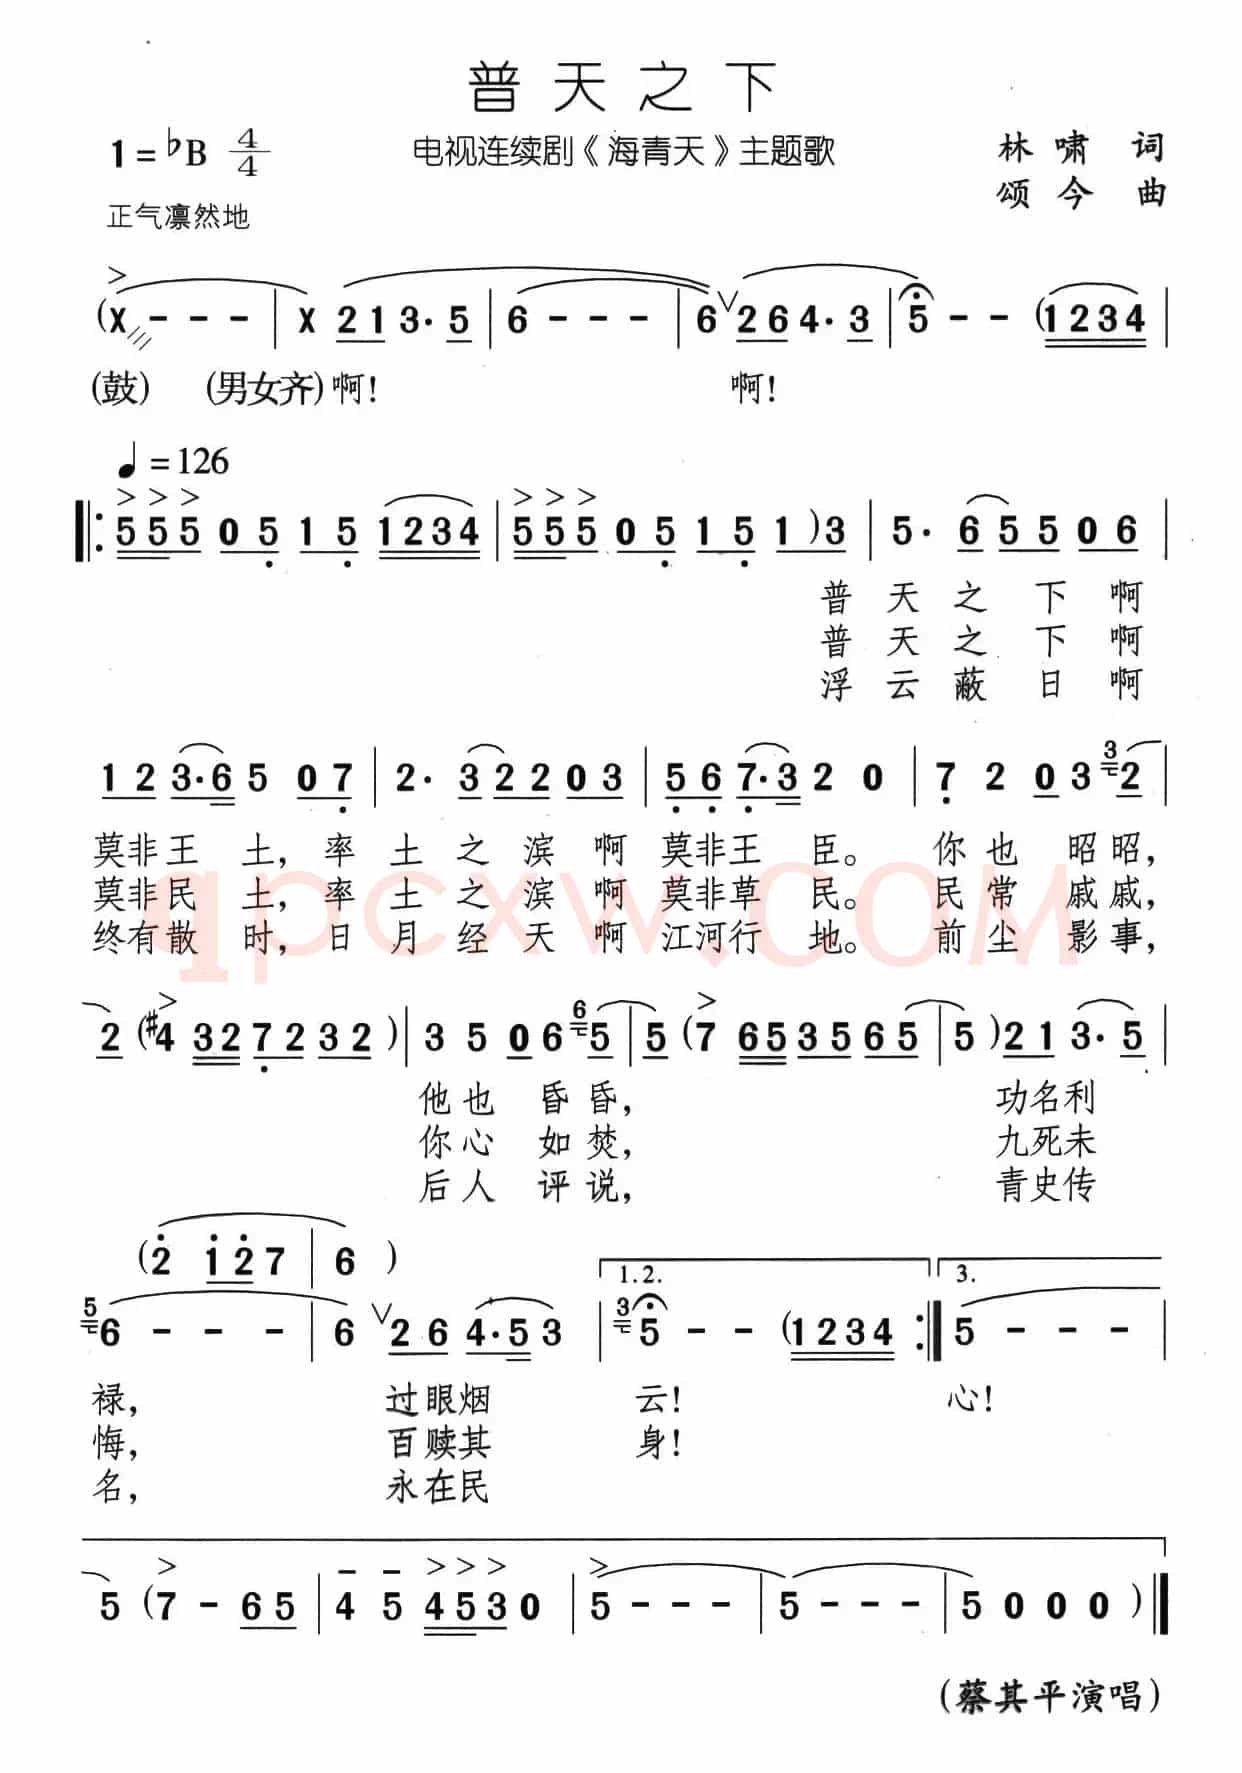 普天之下
1=♭B 4/4 电视连续剧《海青天》主题歌 林啸 词
颂今 曲
正气凛然地
(X - - - | X 2 1 3· 5 | 6 - - - | 6 V 2 6 4· 3 | 5 - - (1 2 3 4 |
(鼓) (男女齐)啊! 啊!
♩=126
‖: 5 5 5 0 5 1 5 1 2 3 4 | 5 5 5 0 5 1 5 1 ) 3 | 5· 6 5 5 0 6 |
普天之下啊
普天之下啊
浮云蔽日啊
1 2 3·6 5 0 7 | 2· 3 2 2 0 3 | 5 6 7·3 2 0 | 7 2 0 3 3 2 |
莫非王土,率土之滨啊莫非王臣。你也昭昭,
莫非民土,率土之滨啊莫非草民。民常戚戚,
终有散时,日月经天啊江河行地。前尘影事,
qpcxw.COM
2 (#4 3 2 7 2 3 2 ) | 3 5 0 6 6 5 | 5 (7 6 5 3 5 6 5 | 5 ) 2 1 3· 5 |
他也昏昏, 功名利
你心如焚, 九死未
后人评说, 青史传
(2 1 2 7 | 6 )
5 6 - - - | 6 V 2 6 4·5 3 | 1.2. 3 5 - - (1 2 3 4 :‖ 3. 5 - - - |
禄, 过眼烟云! 心!
悔, 百赎其身!
名, 永在民
5 (7 - 6 5 | 4 5 4 5 3 0 | 5 - - - | 5 - - - | 5 0 0 0 ) ‖
(蔡其平演唱)